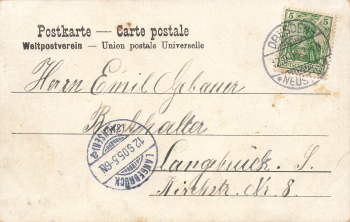 Postkarte — Carte postale
Weltpostverein — Union postale Universelle
5 5
DRESDEN
NEUST
Herrn Emil Ogbauer
Buchhalter
Langebrück. S.
Kirchstr. Nr. 8.
LANGEBRÜCK
(SACHSEN)
12.9.05.5-6N